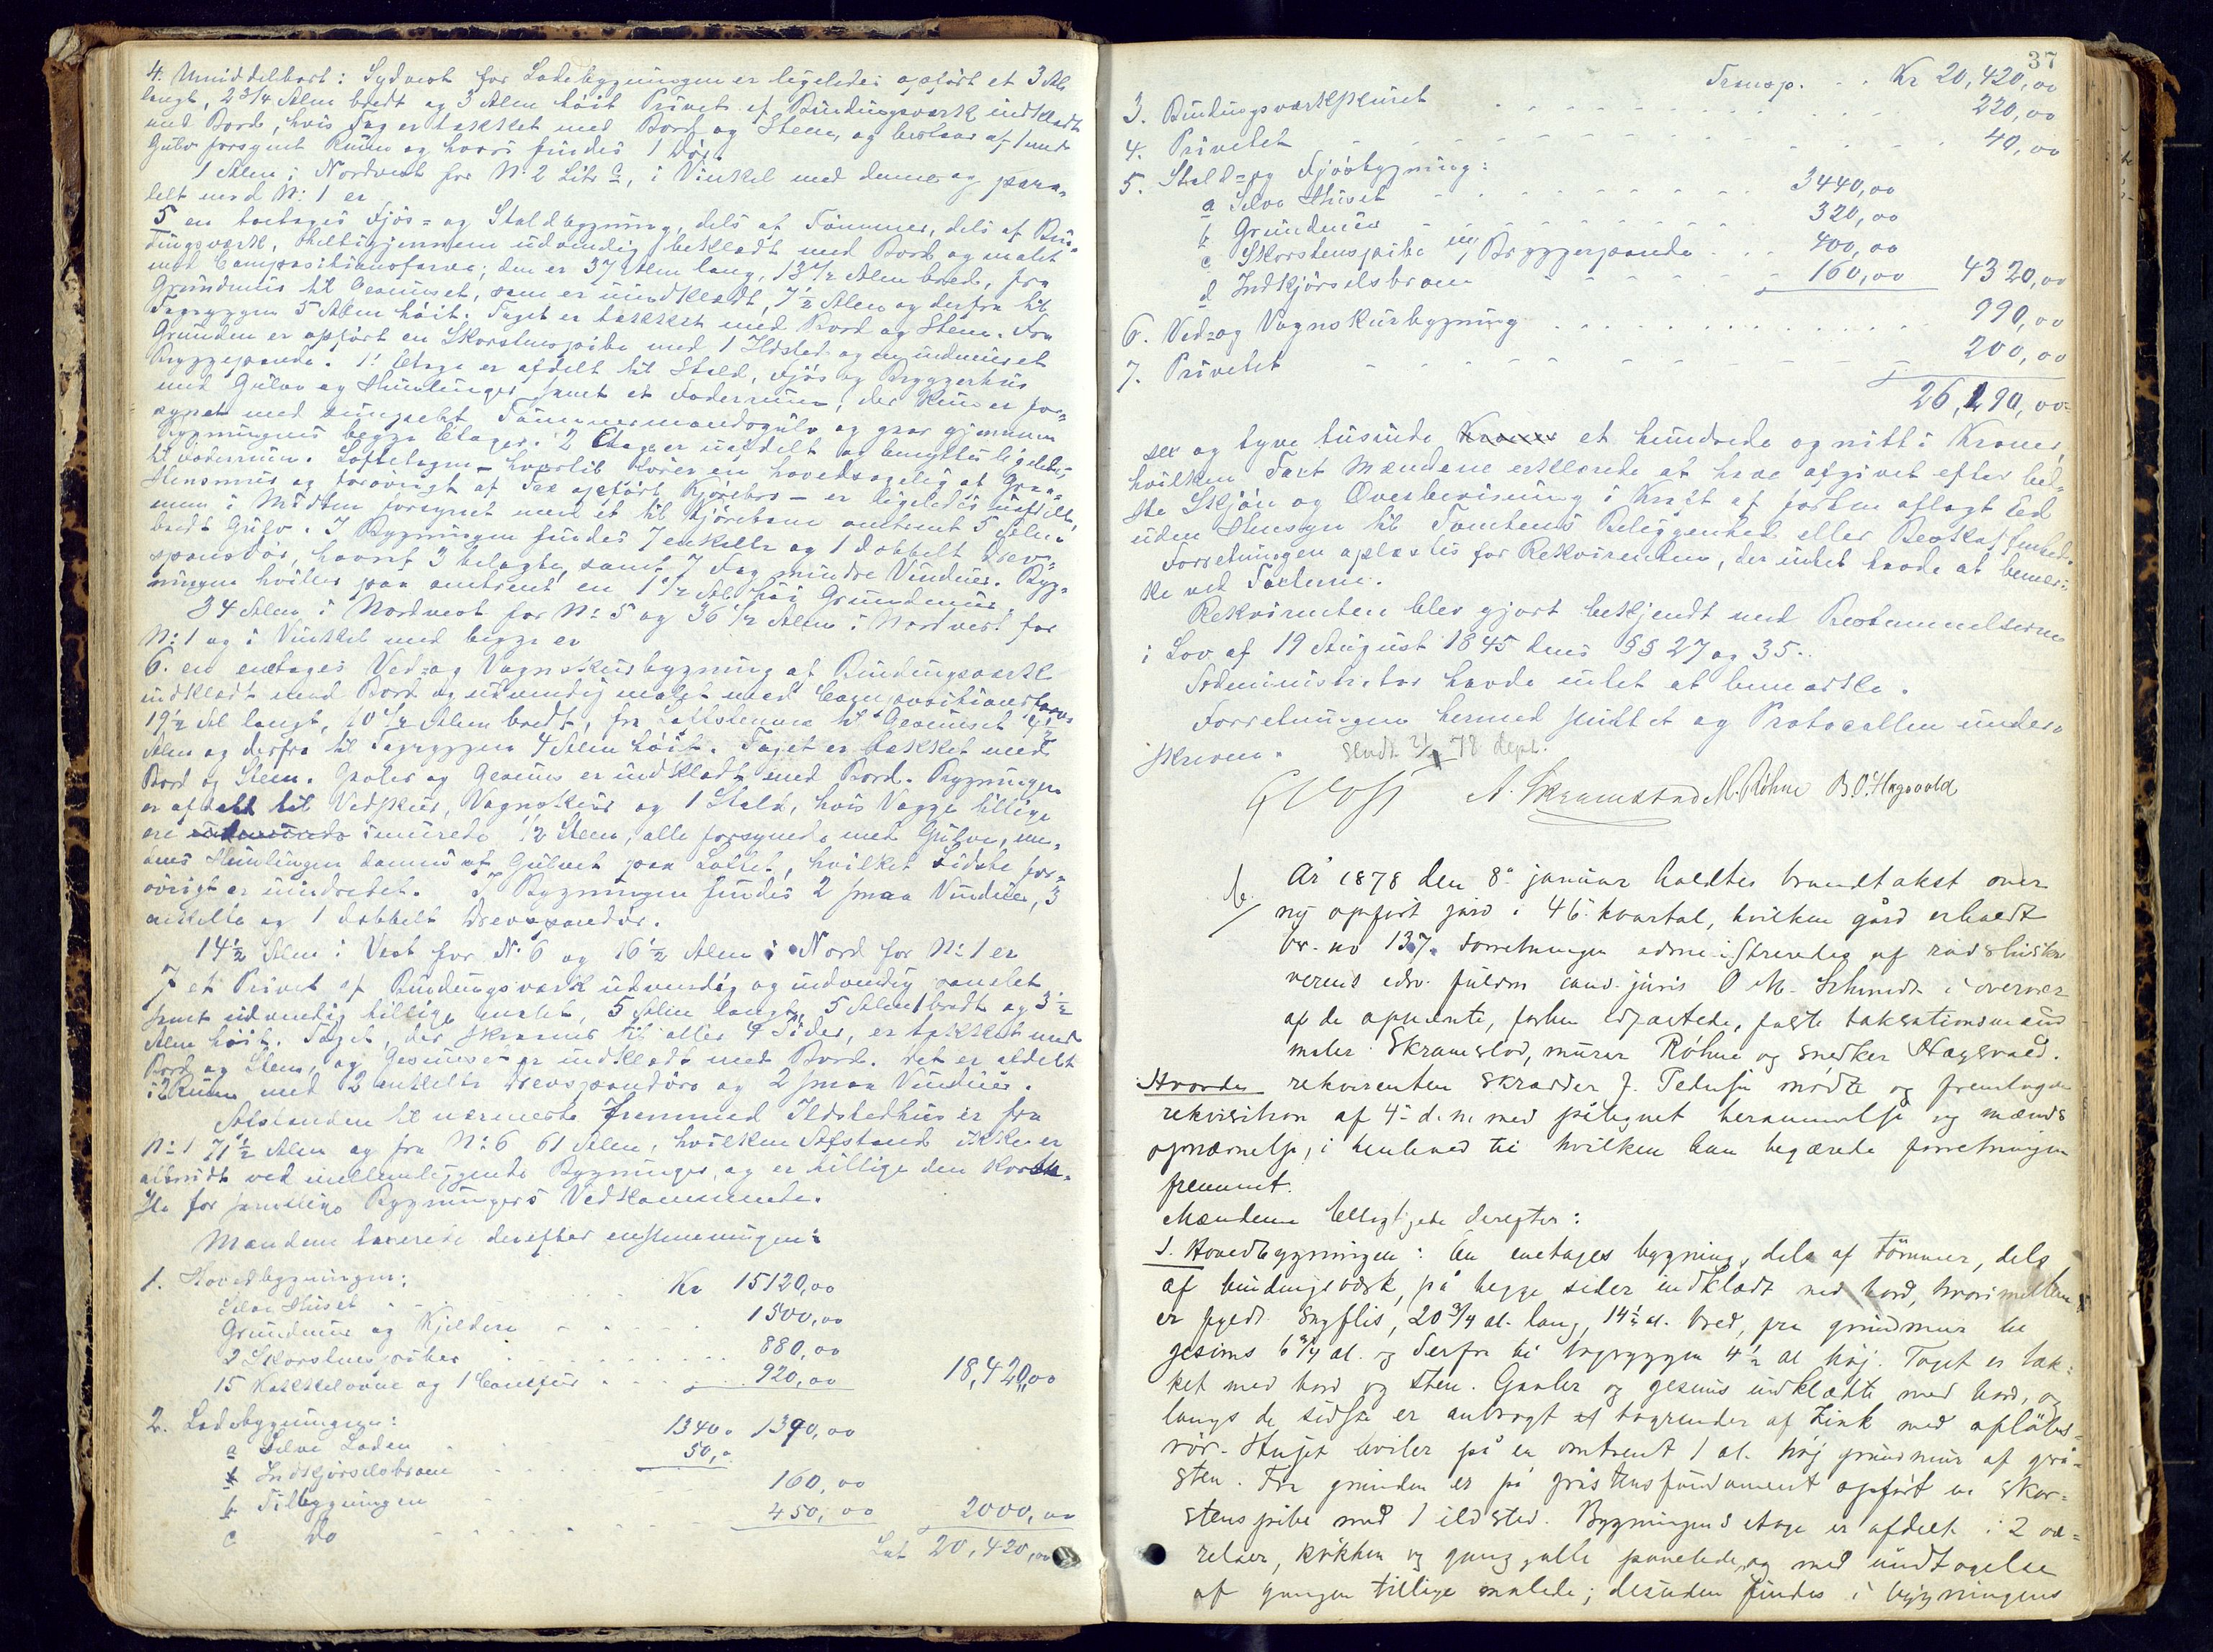 4. Umiddelbart: Sydvest for Ladebygningen er ligeledes opført et 3 Al.
langt, 2 3/4 Alen bredt og 3 Alen höit Privet af Bindingsværk indklædt
med Bord, hvis Tag er tækket med Bord og Steen, og bestaar af 1 med
Gulv forsynet Rum og hvori findes 1 Dør.
1 Alen i Nordvest for N: 2 Litr c, i Vinkel med denne og paral-
lelt med N: 1 er
5 en toetages Fjös- og Staldbygning, dels af Tömmer, dels af Bin-
dingsværk, heltigjennem udvendig beklædt med Bord og malet
med Compositionsfarve; den er 37 Alen lang, 13 1/2 Alen bred, fra
Grundmur til Gesimset, som er uindklædt, 7 1/2 Alen og derfra til
Tagryggen 5 Alen höit. Taget er tækket med Bord og Steen. Fra
Grunden er opført en Skorstenspibe med 1 Ildsted og en indmuret
Bryggepande. 1' Etage er afdelt til Stald, Fjös og Bryggerhus
med Gulve og Himlinger samt et Foderrum, der kun er for-
synet med Tömmermandsgulv og gaar gjennem
Bygningens begge Etager. 2 Etage er uafdelt og benyttes ligeledes
til Foderrum. Loftetagen - hvortil fører en hovedsagelig af Graa-
stensmur og forövrigt af Træ opført Kjørebro - er ligeledes uafdelt,
men i Midten forsynet med et til Kjørebane omtrent 5 Alen
bredt Gulv. I Bygningen findes 7 enkelte og 1 dobbelt Drev-
spansdör, hvoraf 3 belagte, samt 7 Fag mindre Vinduer. Byg-
ningen hviler paa omtrent en 1 1/2 Al. høi Grundmur.
34 Alen i Nordvest for N: 5 og 36 1/2 Alen i Nordvest for
N: 1 og i Vinkel med begge er
6. en enetages Ved- og Vognskurbygning af Bindingsværk
indklædt med Bord og udvendig malet med Compositionsfarve
19 1/2 Al langt, 10 1/2 Alen bredt, fra til Gesimset 4 1/2
Alen og derfra til Tagryggen 4 Alen höit. Taget er tækket med
Bord og Steen. Gavler og Gesims er indklædt med Bord. Bygningen
er afdelt til Vedskur, Vognskur og 1 Stald, hvis Vægge tillige
ere imurede 1/2 Steen, alle forsynede med Gulve, me-
dens Himlingen dannes af Gulvet paa Loftet, hvilket Sidste for-
övrigt er uindredet. I Bygningen findes 2 smaa Vinduer, 3
enkelte og 1 dobbelt Drevspandör.
14 1/2 Alen i Vest for N: 6 og 16 1/2 Alen i Nord for N: 1 er
7 et Privet af Bindingsværk udvendig og indvendig panelet
samt udvendig tillige malet, 5 Alen langt, 5 Alen bredt og 3 1/2
Alen höit. Taget, der skraaner til alle 4 Sider, er tækket med
Bord og Steen, og Gesimset er indklædt med Bord. Det er afdelt
i 2 Rum med 2 enkelte Drevspandöre og 2 smaa Vinduer.
Afstanden til nærmeste fremmed Ildstedhus er fra
N: 1 71 1/2 Alen og fra N: 6 61 Alen, hvilken Afstand ikke er
afbrudt ved mellemliggende Bygninger, og er tillige den korte-
ste for samtlige Bygningers Vedkommende.
Mændene taxerede derefter enstemmigen:
1. Hovedbygningen:
Selve Huset Kr 15120,00
Grundmur og Kjeldere 1500,00
2 Skorstenspiber 880,00
15 Kakkelovne og 1 Comfur 920,00 18,420,00
2. Ladebygningen:
a Selve Laden 1340. 1390,00
Indkjörselsbroen 50,"
b Tilbygningen 160,00
c Do 450,00 2000,00
Lat 20,420,00
37
Transp. Kr 20,420,00
3. Bindingsværkskuret 220,00
4. Privetet 40,00
5. Stald- og Fjösbygning:
a Selve Huset 3440,00
b Grundmur 320,00
c Skorstenspibe m/ Bryggerpande 400,00
d Indkjörselsbroen 160,00 4320,00
6. Ved- og Vognskurbygning 990,00
7. Privetet 200,00
26,190,00
sex og tyve tusinde Kroner et hundrede og nitti Kroner,
hvilken Taxt Mændene erklærede at have afgivet efter bed-
ste Skjön og Overbevisning i Kraft af forhen aflagt Eed
uden Hensyn til Tomtens Beliggenhed eller Beskaffenhed.
Forretningen oplæstes for Rekvirenten, der intet havde at bemær-
ke ved Taxterne.
Rekvirenten blev gjort bekjendt med Bestemmelserne
i Lov af 19 August 1845 dens §§ 27 og 35.
Administrator havde intet at bemærke.
Forretningen hermed sluttet og Protocollen under-
skreven. Sendt 2/1 78 dept.
A. Skramstad M. Røhne B.O. Hagsvold
År 1878 den 8de januar holdtes brandtakst over
ny opført gård i 46 kvartal, hvilken gård erholdt
br. no 137. Forretningen administreredes af rådstuskri-
verens edsv. fuldm cand. juris O M. Schmidt i overvær
af de opnævnte, forhen edfæstede, faste taksationsmænd
maler Skramstad, murer Røhne og snedker Hagsvold.
Hvorda rekvirenten skrædder J. Petersen mødte og fremlagde
rekvisition af 4de d. m. med påtegnet berammelse og mænds
opnævnelse, i henhold til hvilken han begærede forretningen
fremmet.
Mændene besigtigede derefter:
1. Hovedbygningen: En enetages bygning, dels af tömmer, dels
af bindingsværk, på begge sider indklædt med bord, hvorimellem
er fyldt sagflis, 20 3/4 al. lang, 14 1/2 al. bred, fra grundmur til
gesims 6 3/4 al. og derfra til tagryggen 4 1/2 al høj. Taget er tæk-
ket med bord og sten. Gavler og gesims indklædte med bord, og
langs de sidste er anbragt tagrender af zink med afløbs-
rör. Huset hviler på en omtrent 1 al. höj grundmur af grå-
sten. Fra grunden er på gråstensfundament opført en skor-
stenspibe med 1 ildsted. Bygningens etage er afdelt i 2 væ-
relser, kökken og gang, alle panelede, og med undtagelse
af gangen tillige malede; desuden findes i bygningens